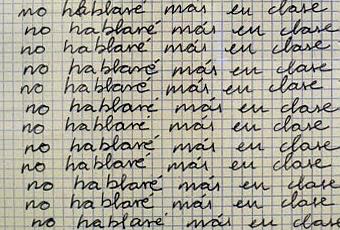 no hablaré más en clase
no hablaré más en clase
no hablaré más en clase
no hablaré más en clase
no hablaré más en clase
no hablaré más en clase
no hablaré más en clase
no hablaré más en clase
no hablaré más en clase
no hablaré más en clase
no hablaré más en clase
no hablaré más en clase